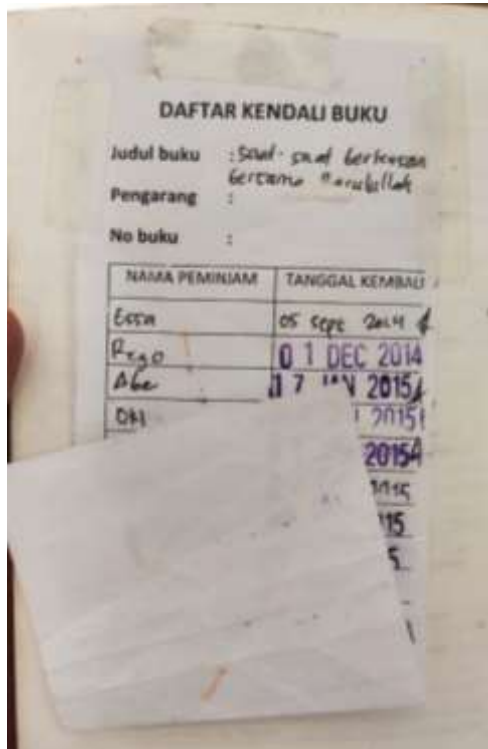 DAFTAR KENDALI BUKU
Judul buku : Saat-saat berkesan
bersama Rasulullah
Pengarang :
No buku :
NAMA PEMINJAM TANGGAL KEMBALI
Essa 05 Sept 2014
Rego 01 DEC 2014
Abe 17 JAN 2015
OKI 2015
2015
2015
15
5